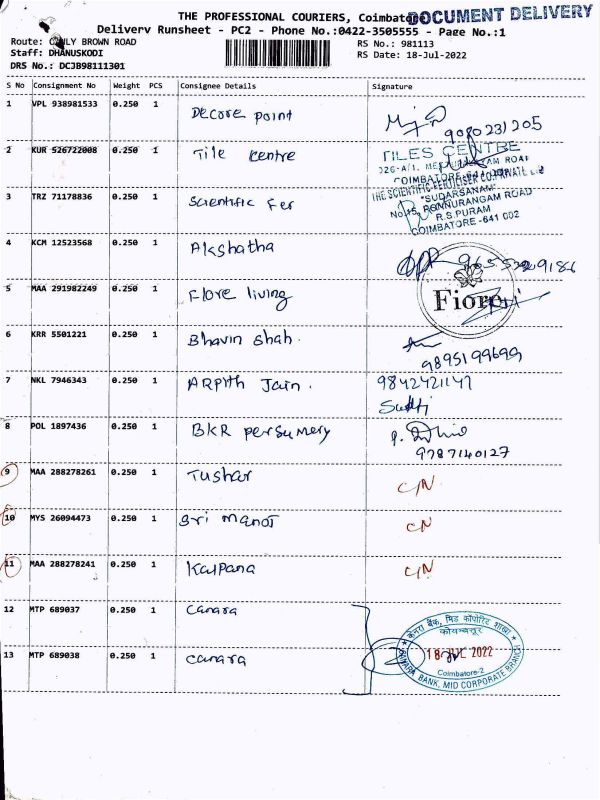 THE PROFESSIONAL COURIERS, Coimbatore
DOCUMENT DELIVERY
Delivery Runsheet - PC2 - Phone No.:0422-3505555 - Page No.:1
Route: COWLY BROWN ROAD
RS No.: 981113
Staff: DHANUSKODI
RS Date: 18-Jul-2022
DRS No.: DCJB98111301
S No Consignment No Weight PCS Consignee Details Signature
1 VPL 938981533 0.250 1 Decore point
9080231205
2 KUR 526722008 0.250 1 Tile centre
TILES CENTRE
COIMBATORE
3 TRZ 71178836 0.250 1 Scientific Fer
THE SCIENTIFIC FERTILISER CO. PRIVATE
"SUDARSANAM"
No.15, PONNURANGAM ROAD
R.S.PURAM
COIMBATORE-641 002
4 KCM 12523568 0.250 1 Akshatha
5 MAA 291982249 0.250 1 Fiore living
Fiore
6 KRR 5501221 0.250 1 Bhavin shah.
9895199699
7 NKL 7946343 0.250 1 Arpith Jain.
9842421147
8 POL 1897436 0.250 1 BKR persumery
9787140127
9 MAA 288278261 0.250 1 Tushar C/N
10 MYS 26094473 0.250 1 Sri Manot C/N
11 MAA 288278241 0.250 1 Kalpana C/N
12 MTP 689037 0.250 1 canara
केनरा बैंक, मिड कॉर्पोरेट शाखा
कोयम्बत्तूर
13 MTP 689038 0.250 1 canara
18 JUL 2022
Coimbatore-2
CANARA BANK, MID CORPORATE BRANCH